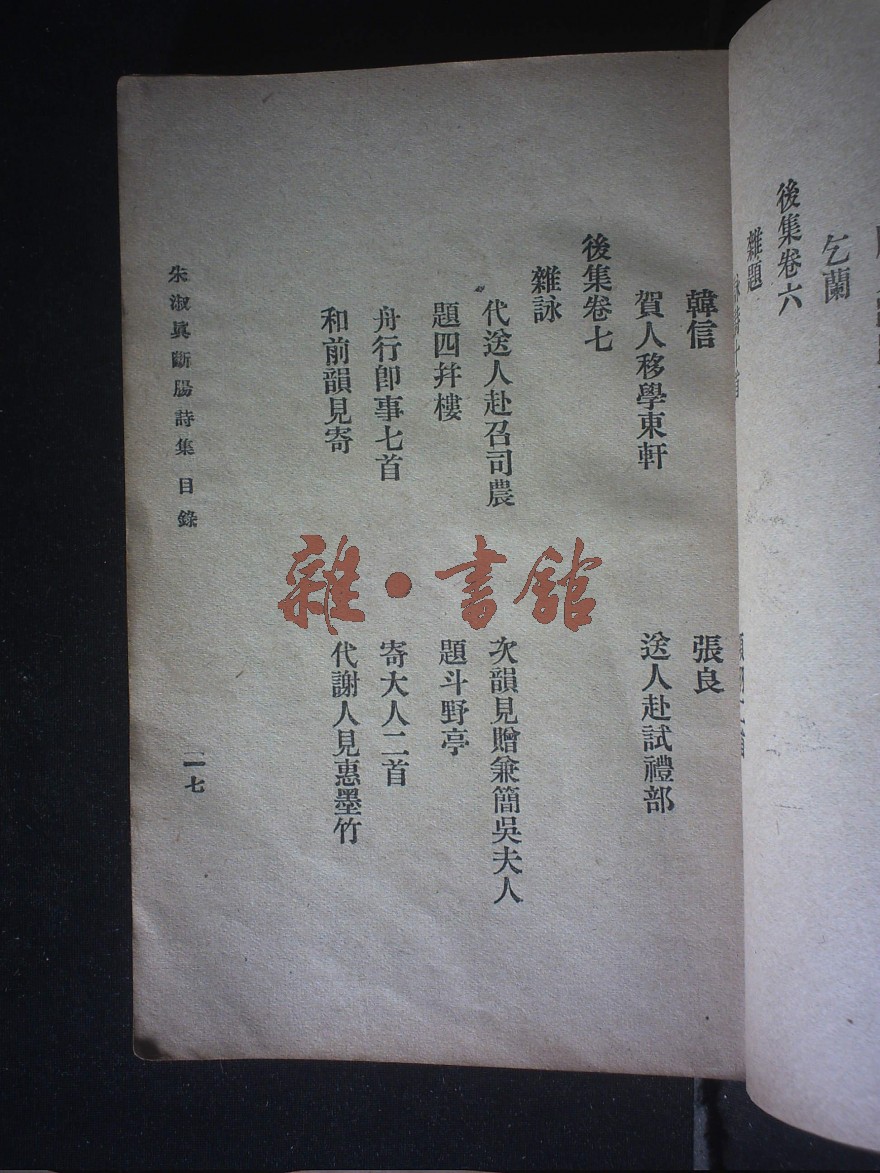 乞蘭
後集卷六
雜題
韓信
張良
賀人移學東軒
送人赴試禮部
後集卷七
雜詠
代送人赴召司農
次韻見贈兼簡吳夫人
題四幷樓
題斗野亭
舟行卽事七首
寄大人二首
和前韻見寄
代謝人見惠墨竹
朱淑眞斷腸詩集 目錄
一七
雜·書館